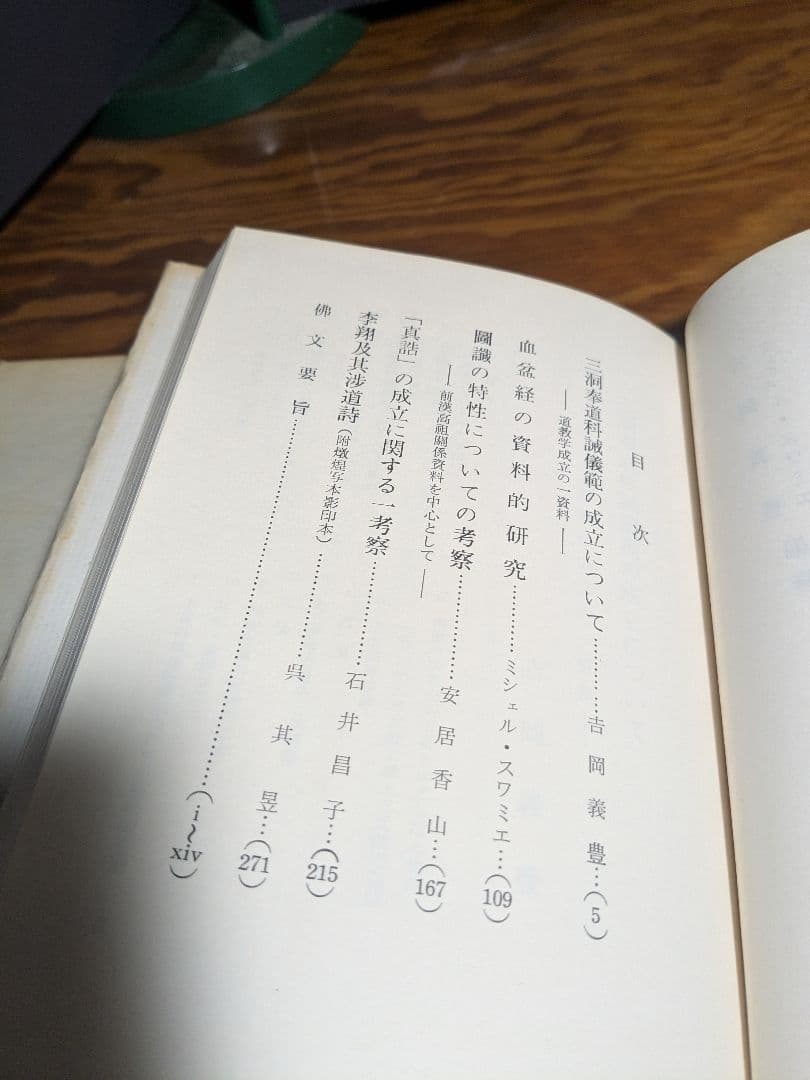 目次
三洞奉道科誡儀範の成立について…………吉岡義豊…(5)
―― 道教学成立の一資料 ――
血盆経の資料的研究…………ミシェル・スワミエ…(109)
圖讖の特性についての考察…………安居香山…(167)
―― 前漢高祖關係資料を中心として ――
「真誥」の成立に関する一考察…………石井昌子…(215)
李翔及其涉道詩(附燉煌写本影印本)…………呉其昱…(271)
佛文要旨…………(i〜xiv)